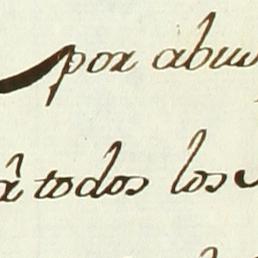 por abu
â todos los